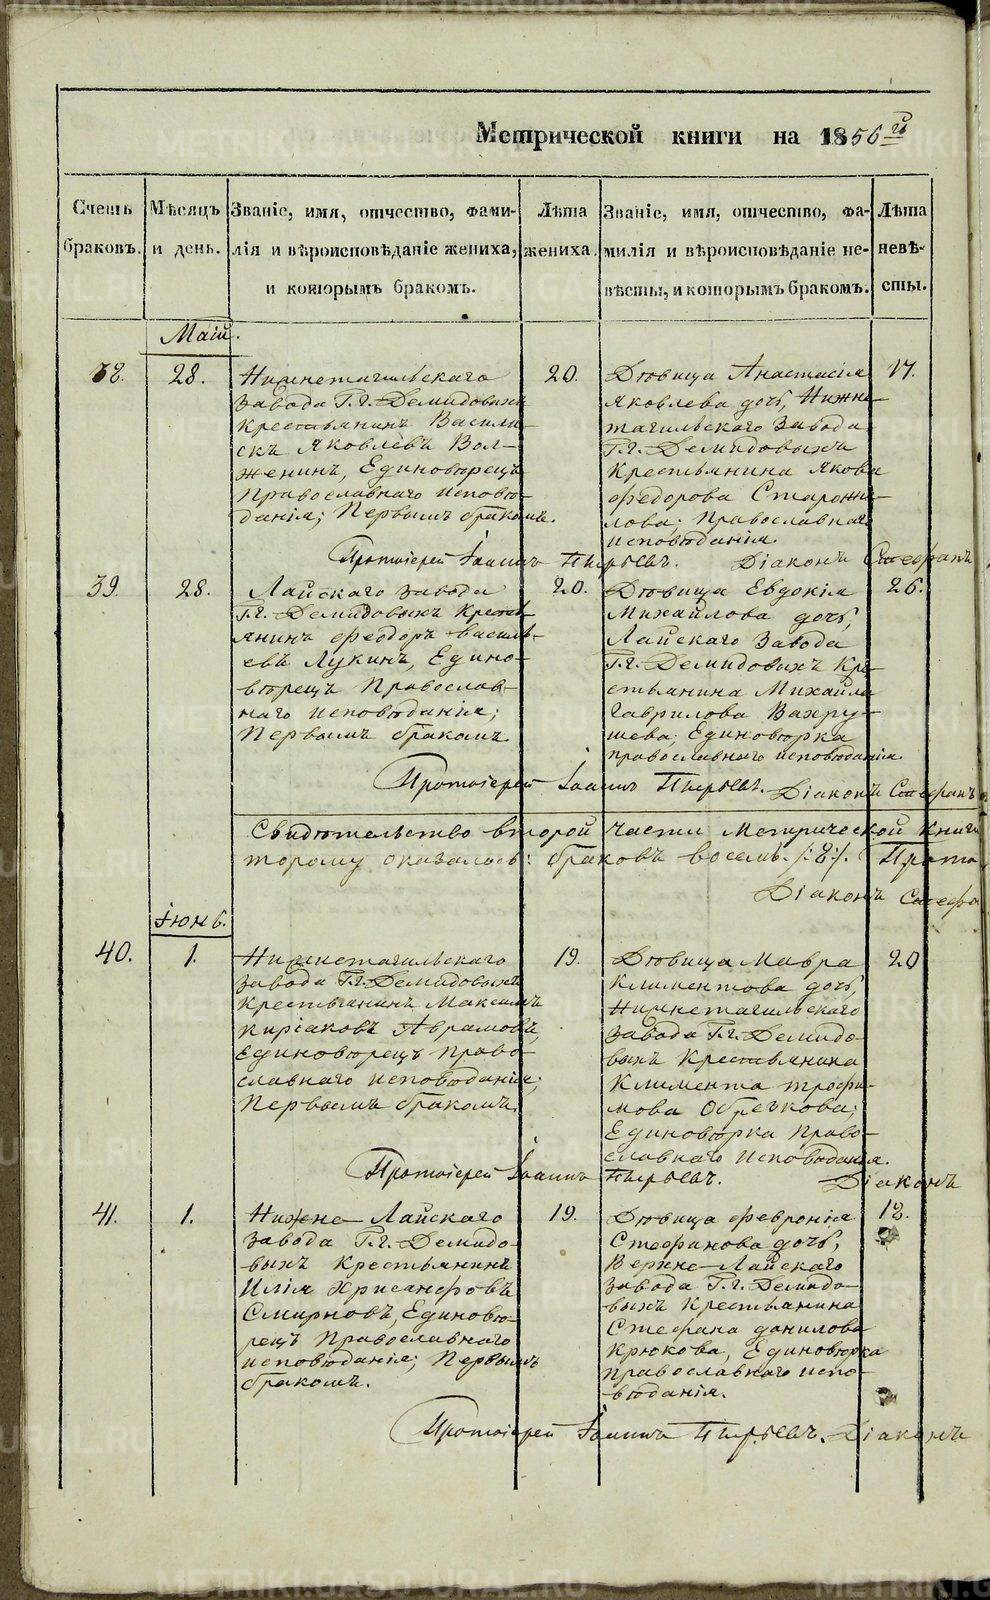 METRIKI.GASO-URAL.RU
Метрической книги на 1856й
Счетъ браковъ.
Мѣсяцъ и день.
Званіе, имя, отчество, фами-
лія и вѣроисповѣданіе жениха,
и которымъ бракомъ.
Лѣта жениха.
Званіе, имя, отчество, фа-
милія и вѣроисповѣданіе не-
вѣсты, и которымъ бракомъ.
Лѣта невѣ-
сты.
Маій.
38.
28.
Нижнетагильскаго
Завода Г.г. Демидовыхъ
Крестьянинъ Васили-
скъ Яковлевъ Вол-
женинъ, Единовѣрецъ
Православнаго исповѣ-
данія; Первымъ бракомъ.
20.
Дѣвица Анастасія
Яковлева дочь, Нижне-
тагильскаго Завода
Г.г. Демидовыхъ
Крестьянина Якова
Федорова Старожи-
лова; Православнаго
исповѣданія.
17.
Протоіерей Іоаннъ Пырьевъ. Діаконъ Стефанъ
39.
28.
Лайскаго завода
Г.г. Демидовыхъ Кресть-
янинъ Феодоръ Василь-
евъ Лукинъ, Едино-
вѣрецъ Православ-
наго исповѣданія;
Первымъ бракомъ.
20.
Дѣвица Евдокія
Михайлова дочь,
Лайскаго Завода
Г.г. Демидовыхъ Кре-
стьянина Михайла
Гаврилова Вахру-
шева; Единовѣрка
православнаго исповѣданія.
26.
Протоіерей Іоаннъ Пырьевъ. Діаконъ Стефанъ
Свидѣтельство второй части Метрической Книги
торому оказалось: браковъ восемь. /:8:/. Прото
Діаконъ Стефа
Іюнь.
40.
1.
Нижнетагильскаго
Завода Г.г. Демидовыхъ
Крестьянинъ Максимъ
Киріаковъ Аврамовъ,
Единовѣрецъ Право-
славнаго исповѣданія;
Первымъ бракомъ.
19.
Дѣвица Мавра
Климентова дочь,
Нижнетагильскаго
Завода Г.г. Демидо-
выхъ Крестьянина
Климента Трофи-
мова Обрезкова;
Единовѣрка Право-
славнаго Исповѣданія.
20
Протоіерей Іоаннъ Пырьевъ. Діаконъ
41.
1.
Нижне-Лайскаго
Завода Г.г. Демидо-
выхъ Крестьянинъ
Илія Хрисанфовъ
Смирновъ, Единовѣ-
рецъ Православнаго
исповѣданія; Первымъ
бракомъ.
19.
Дѣвица Февронія
Стефанова дочь,
Верхне-Лайскаго
Завода Г.г. Демидо-
выхъ Крестьянина
Стефана Данилова
Крюкова, Единовѣрка
Православнаго испо-
вѣданія.
18.
Протоіерей Іоаннъ Пырьевъ. Діаконъ